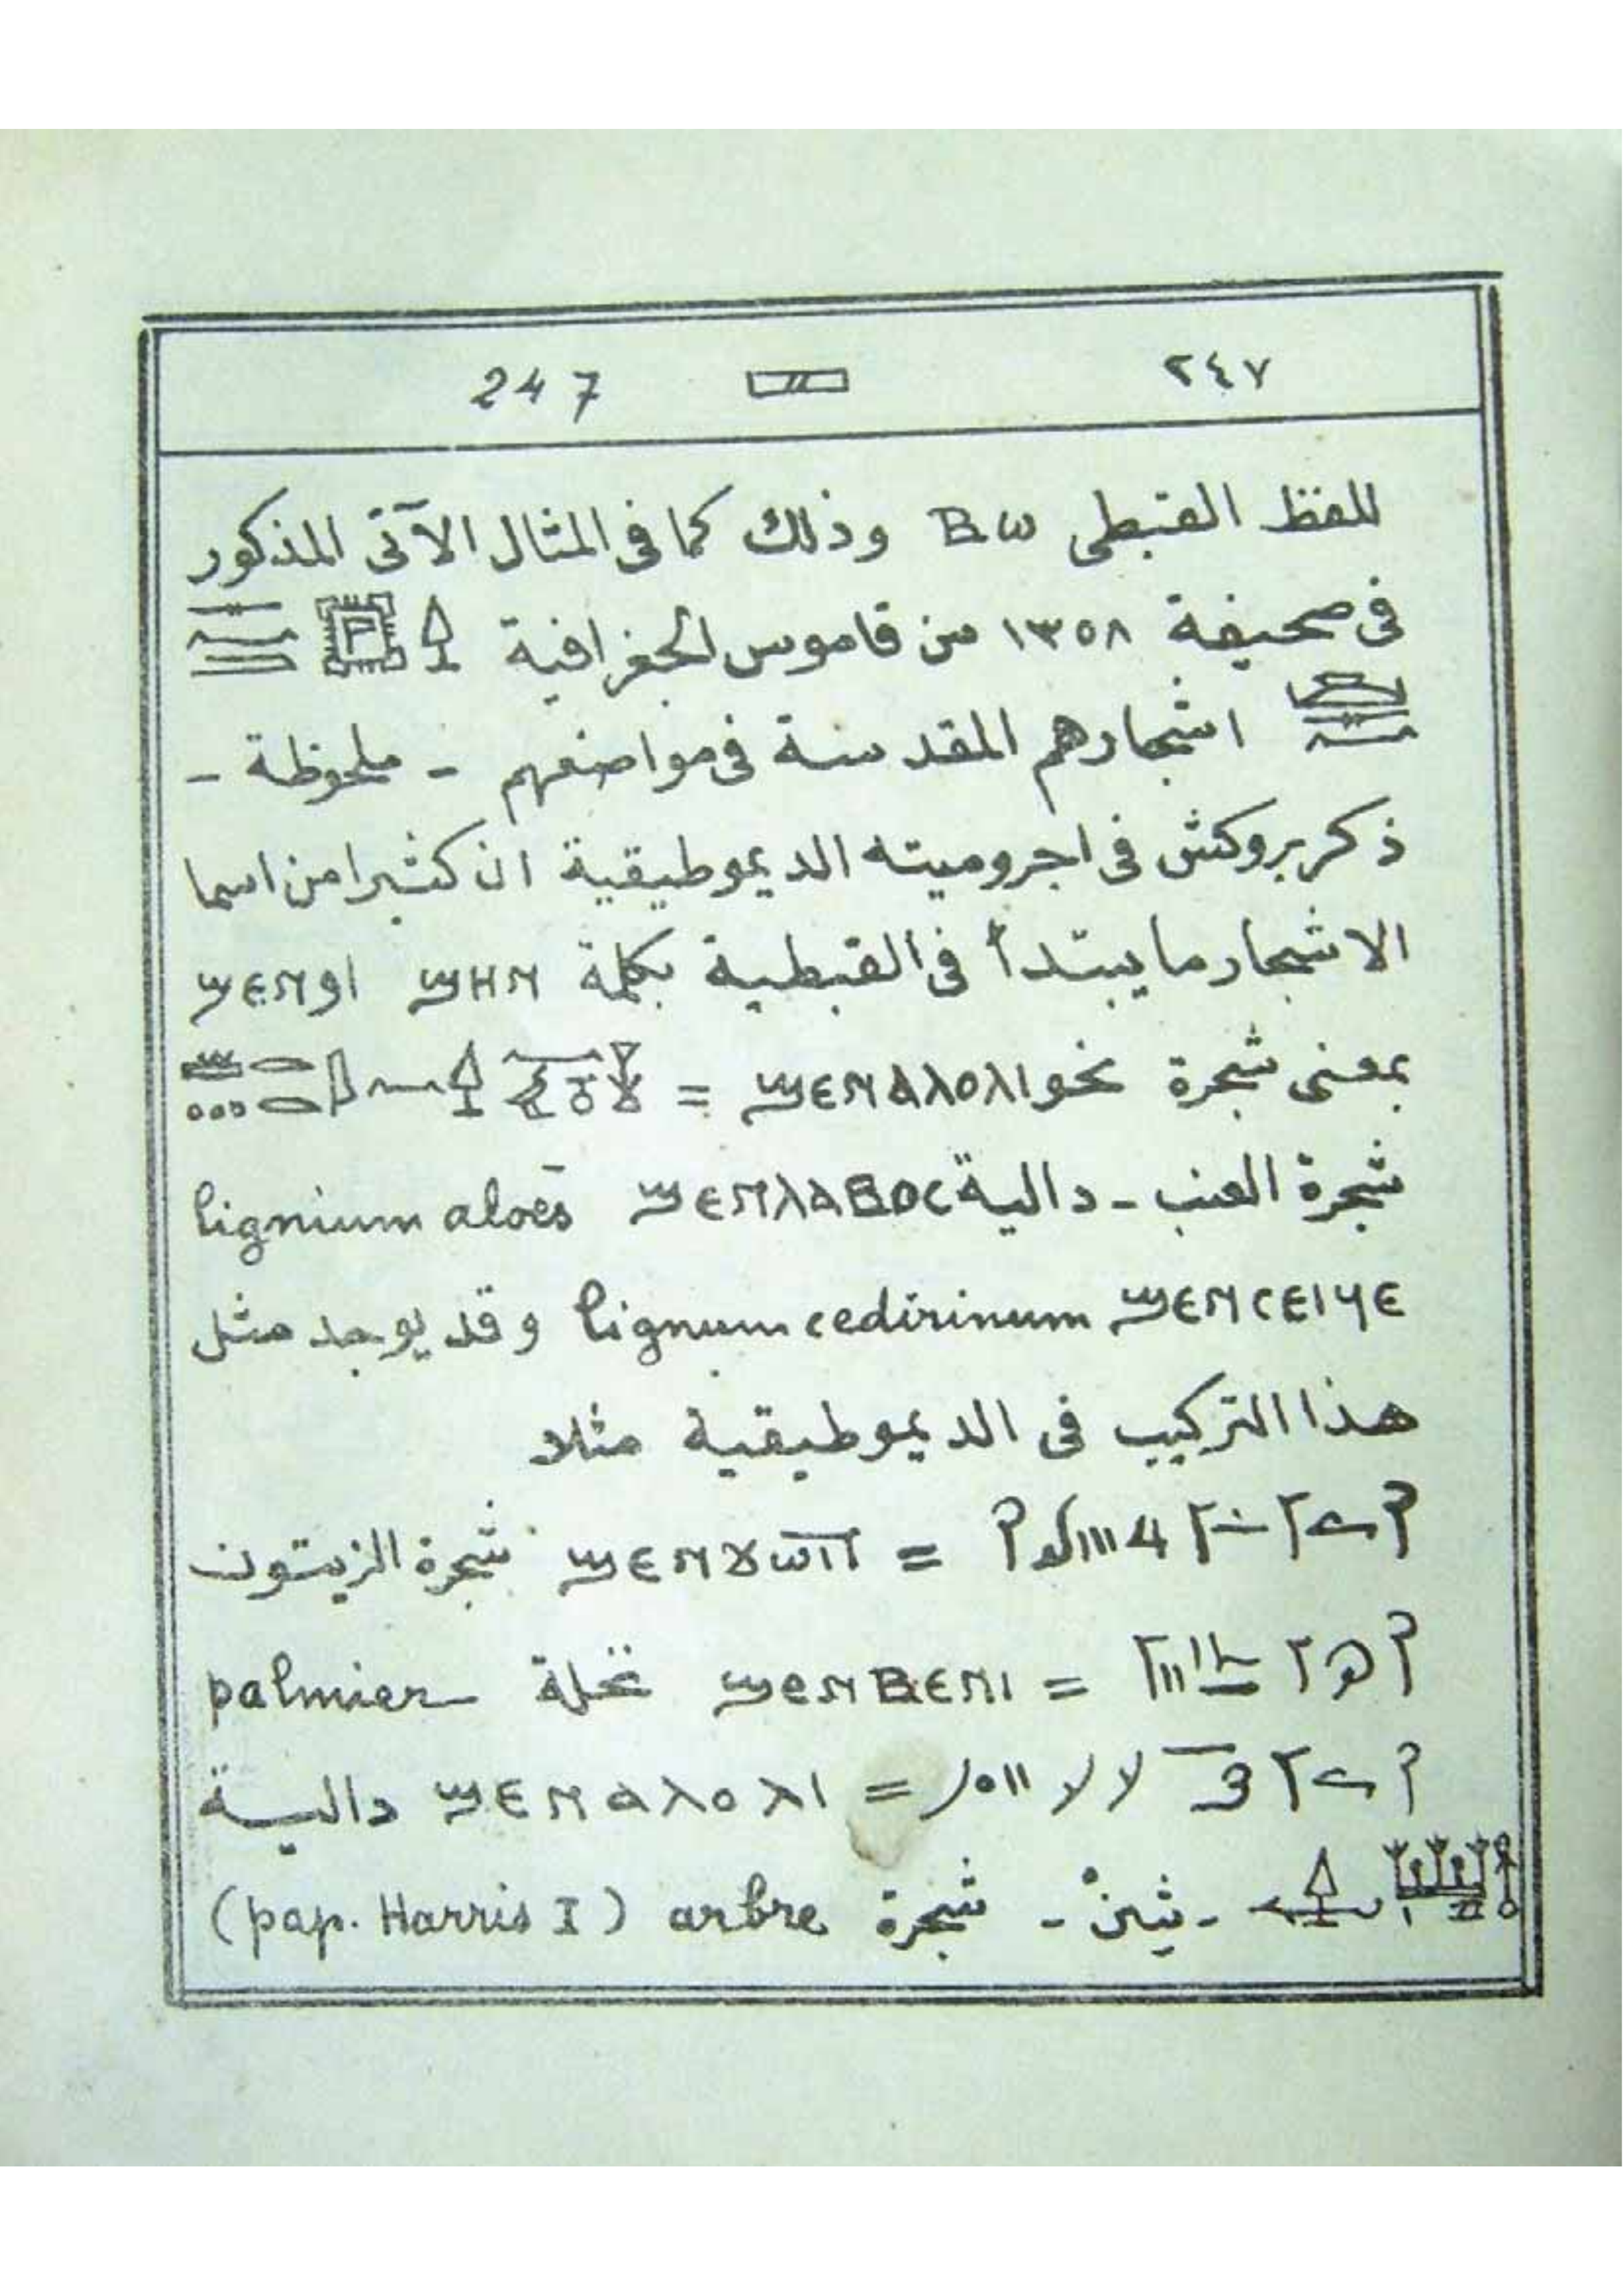 ٢٤٧ 247
للفظ القبطى Ⲃⲱ وذلك كما فى المثال الآتى المذكور
فى صحيفة ١٣٥٨ من قاموس الجغرافية
اشجارهم المقدسة فى مواضعهم - ملحوظة -
ذكر بروكش فى اجروميته الديموطيقية ان كثيرا من اسما
الاشجار ما يبتدأ فى القبطية بكلمة ϣⲏⲛ او ϣⲉⲛ
بمعنى شجرة نحو ϣⲉⲛⲁⲗⲟⲗⲓ =
شجرة العنب - دالية ϣⲉⲛⲗⲁⲃⲟⲥ lignium aloës
ϣⲉⲛⲥⲉⲓϥⲉ lignum cedirinum وقد يوجد مثل
هذا التركيب فى الديموطيقية مثلا
= ϣⲉⲛ شجرة الزيتون
= ϣⲉⲛⲃⲉⲛⲓ نخلة palmier
= ϣⲉⲛⲁⲗⲟⲗⲓ دالية
- شجرة arbre (pap. Harris I)